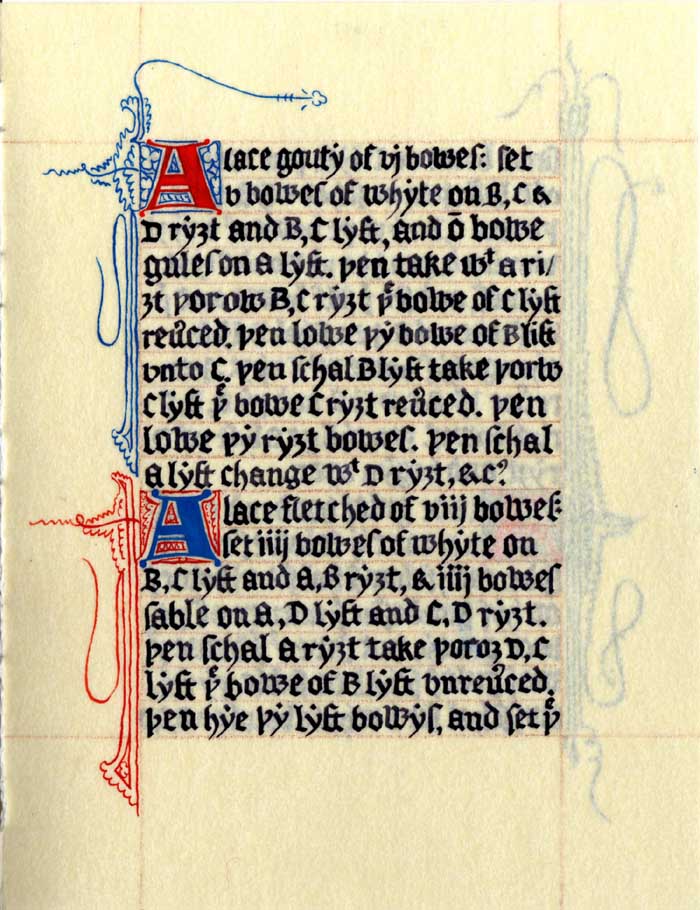 A lace goutẏ of vj boweſ: ſet
v boweſ of whẏte on B, C &
D rẏȝt and B, C lẏft, and ō bowe
guleſ on A lẏft. þen take wᵗ a ri/
ȝt þorow B, C rẏȝt þͤ bowe of C lẏft
reūced. þen lowe þẏ bowe of B lift
vnto C. þen ſchal B lẏft take þorw
C lẏft þͤ bowe C rẏȝt reūced. þen
lowe þẏ rẏȝt bowes. þen ſchal
A lẏft change wᵗ D rẏȝt, &c?
A lace fletched of viij boweſ:
ſet iiij boweſ of whẏte on
B, C lẏft and A, B rẏȝt, & iiij boweſ
ſable on A, D lẏft and C, D rẏȝt.
þen ſchal A rẏȝt take þoroȝ D, C
lẏft þͤ bowe of B lẏft vnreūced.
þen hẏe þẏ lẏft bowẏs, and ſet þͤ